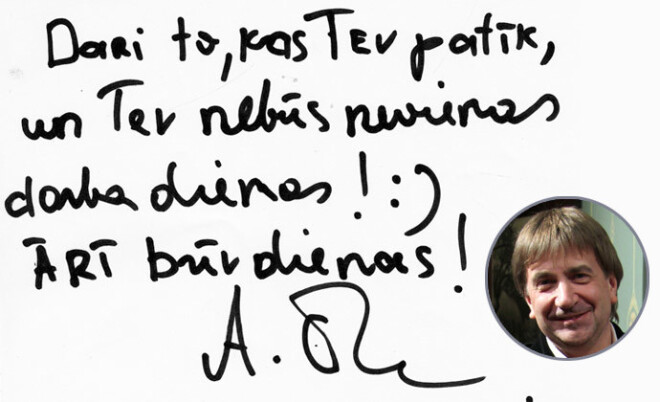 Dari to, kas Tev patīk,
un Tev nebūs nevienas
darba dienas! :)
ARĪ brīvdienas!
A.